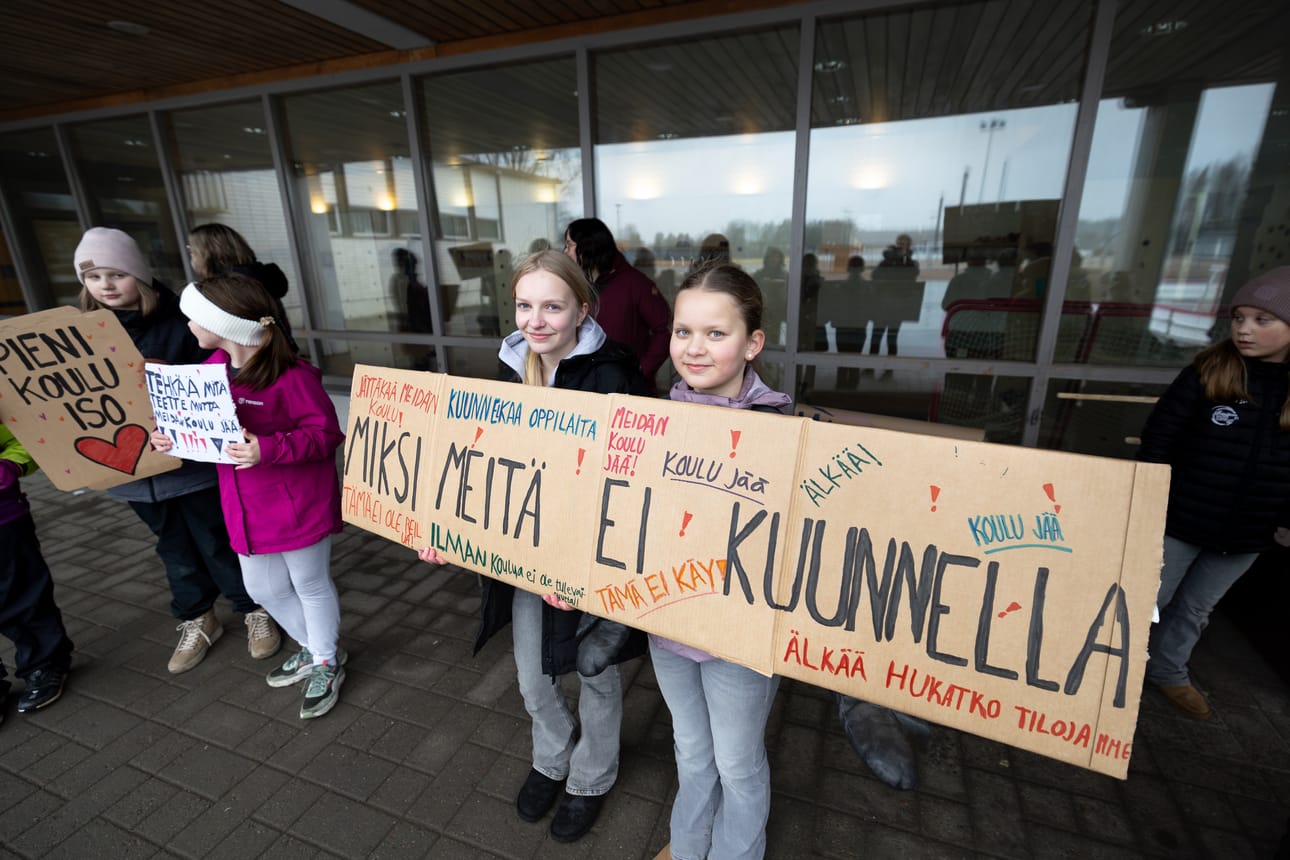 PIENI
KOULU
ISO
TEHKÄÄ MITÄ
TEETTE MUTTA
MEIDÄN KOULU JÄÄ
!!!!!
JÄTTÄKÄÄ MEIDÄN
KOULU!
KUUNNELKAA OPPILAITA
MEIDÄN
KOULU
JÄÄ!
KOULU JÄÄ
ÄLKÄÄ!
KOULU JÄÄ
MIKSI MEITÄ EI KUUNNELLA
TÄMÄ EI OLE REIL
UA!
ILMAN KOULUA ei ole tulevai
suutta!!
TÄMÄ EI KÄY!
ÄLKÄÄ HUKATKO TILOJAMME